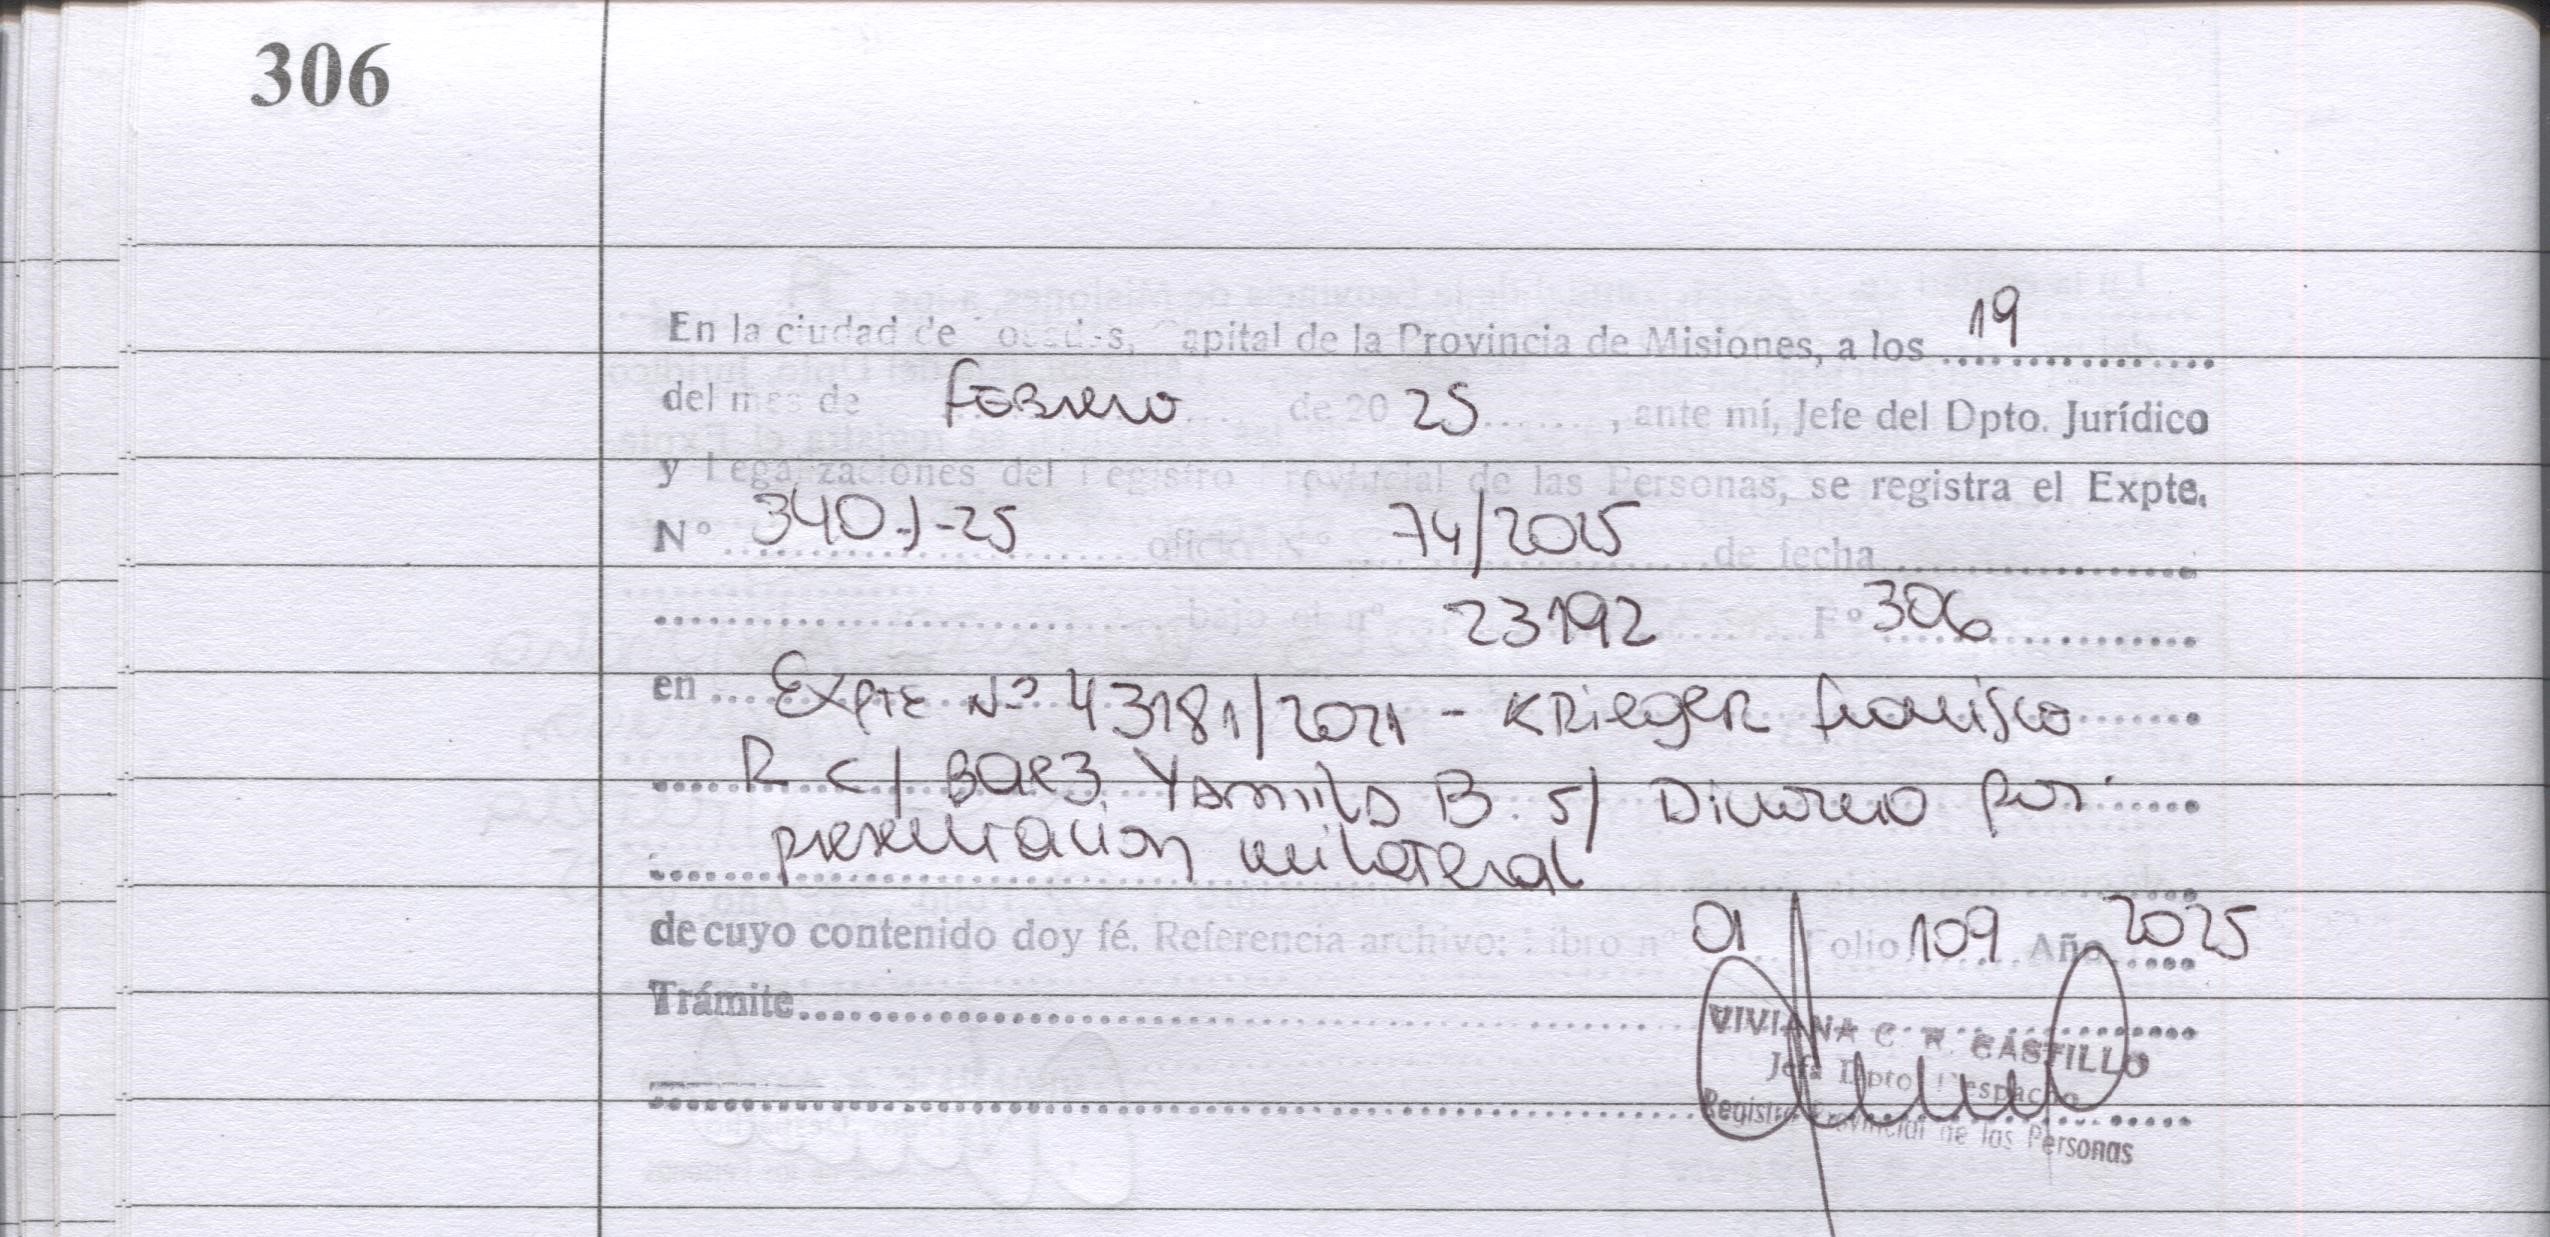 306
En la ciudad de Posadas, Capital de la Provincia de Misiones, a los 19
del mes de Febrero de 20 25 , ante mí, Jefe del Dpto. Jurídico
y Legalizaciones del Registro Provincial de las Personas, se registra el Expte.
N° 340-J-25 oficio N° 74/2025 de fecha
bajo el n° 23192 F° 306
en Expte Nº 43181/2021 - KRiegeR Francisco
R c/ Baez Yamila B. s/ Divorcio por
presentacion unilateral
de cuyo contenido doy fé. Referencia archivo: Libro n° 01 Folio 109 Año 2025
Trámite
VIVIANA C. R. CASTILLO
Jefa Dpto. Despacho
Registro Provincial de las Personas